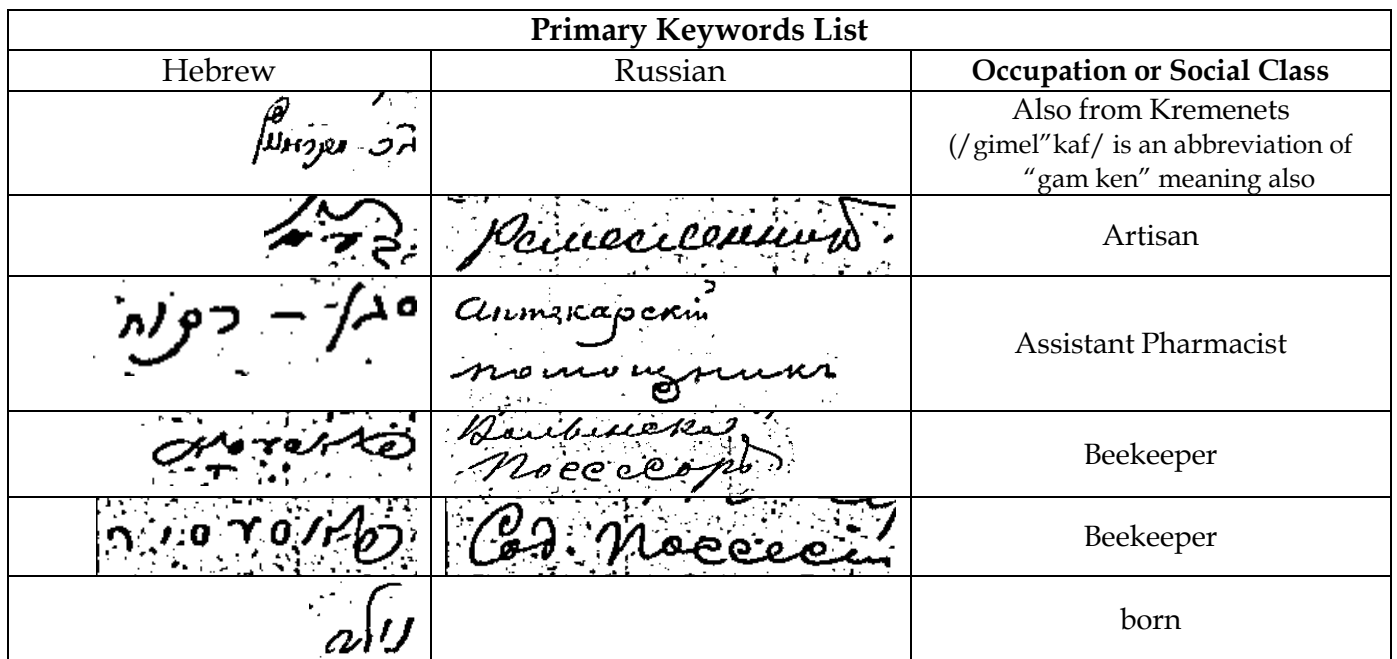 Primary Keywords List
Hebrew Russian Occupation or Social Class
ג״כ
Also from Kremenets
(/gimel"kaf/ is an abbreviation of
"gam ken" meaning also
Ремесленникъ. Artisan
סגן – רקוח
Аптекарскій
помощникъ
Assistant Pharmacist
Посессоръ
Beekeeper
Сод. Beekeeper
נולד born